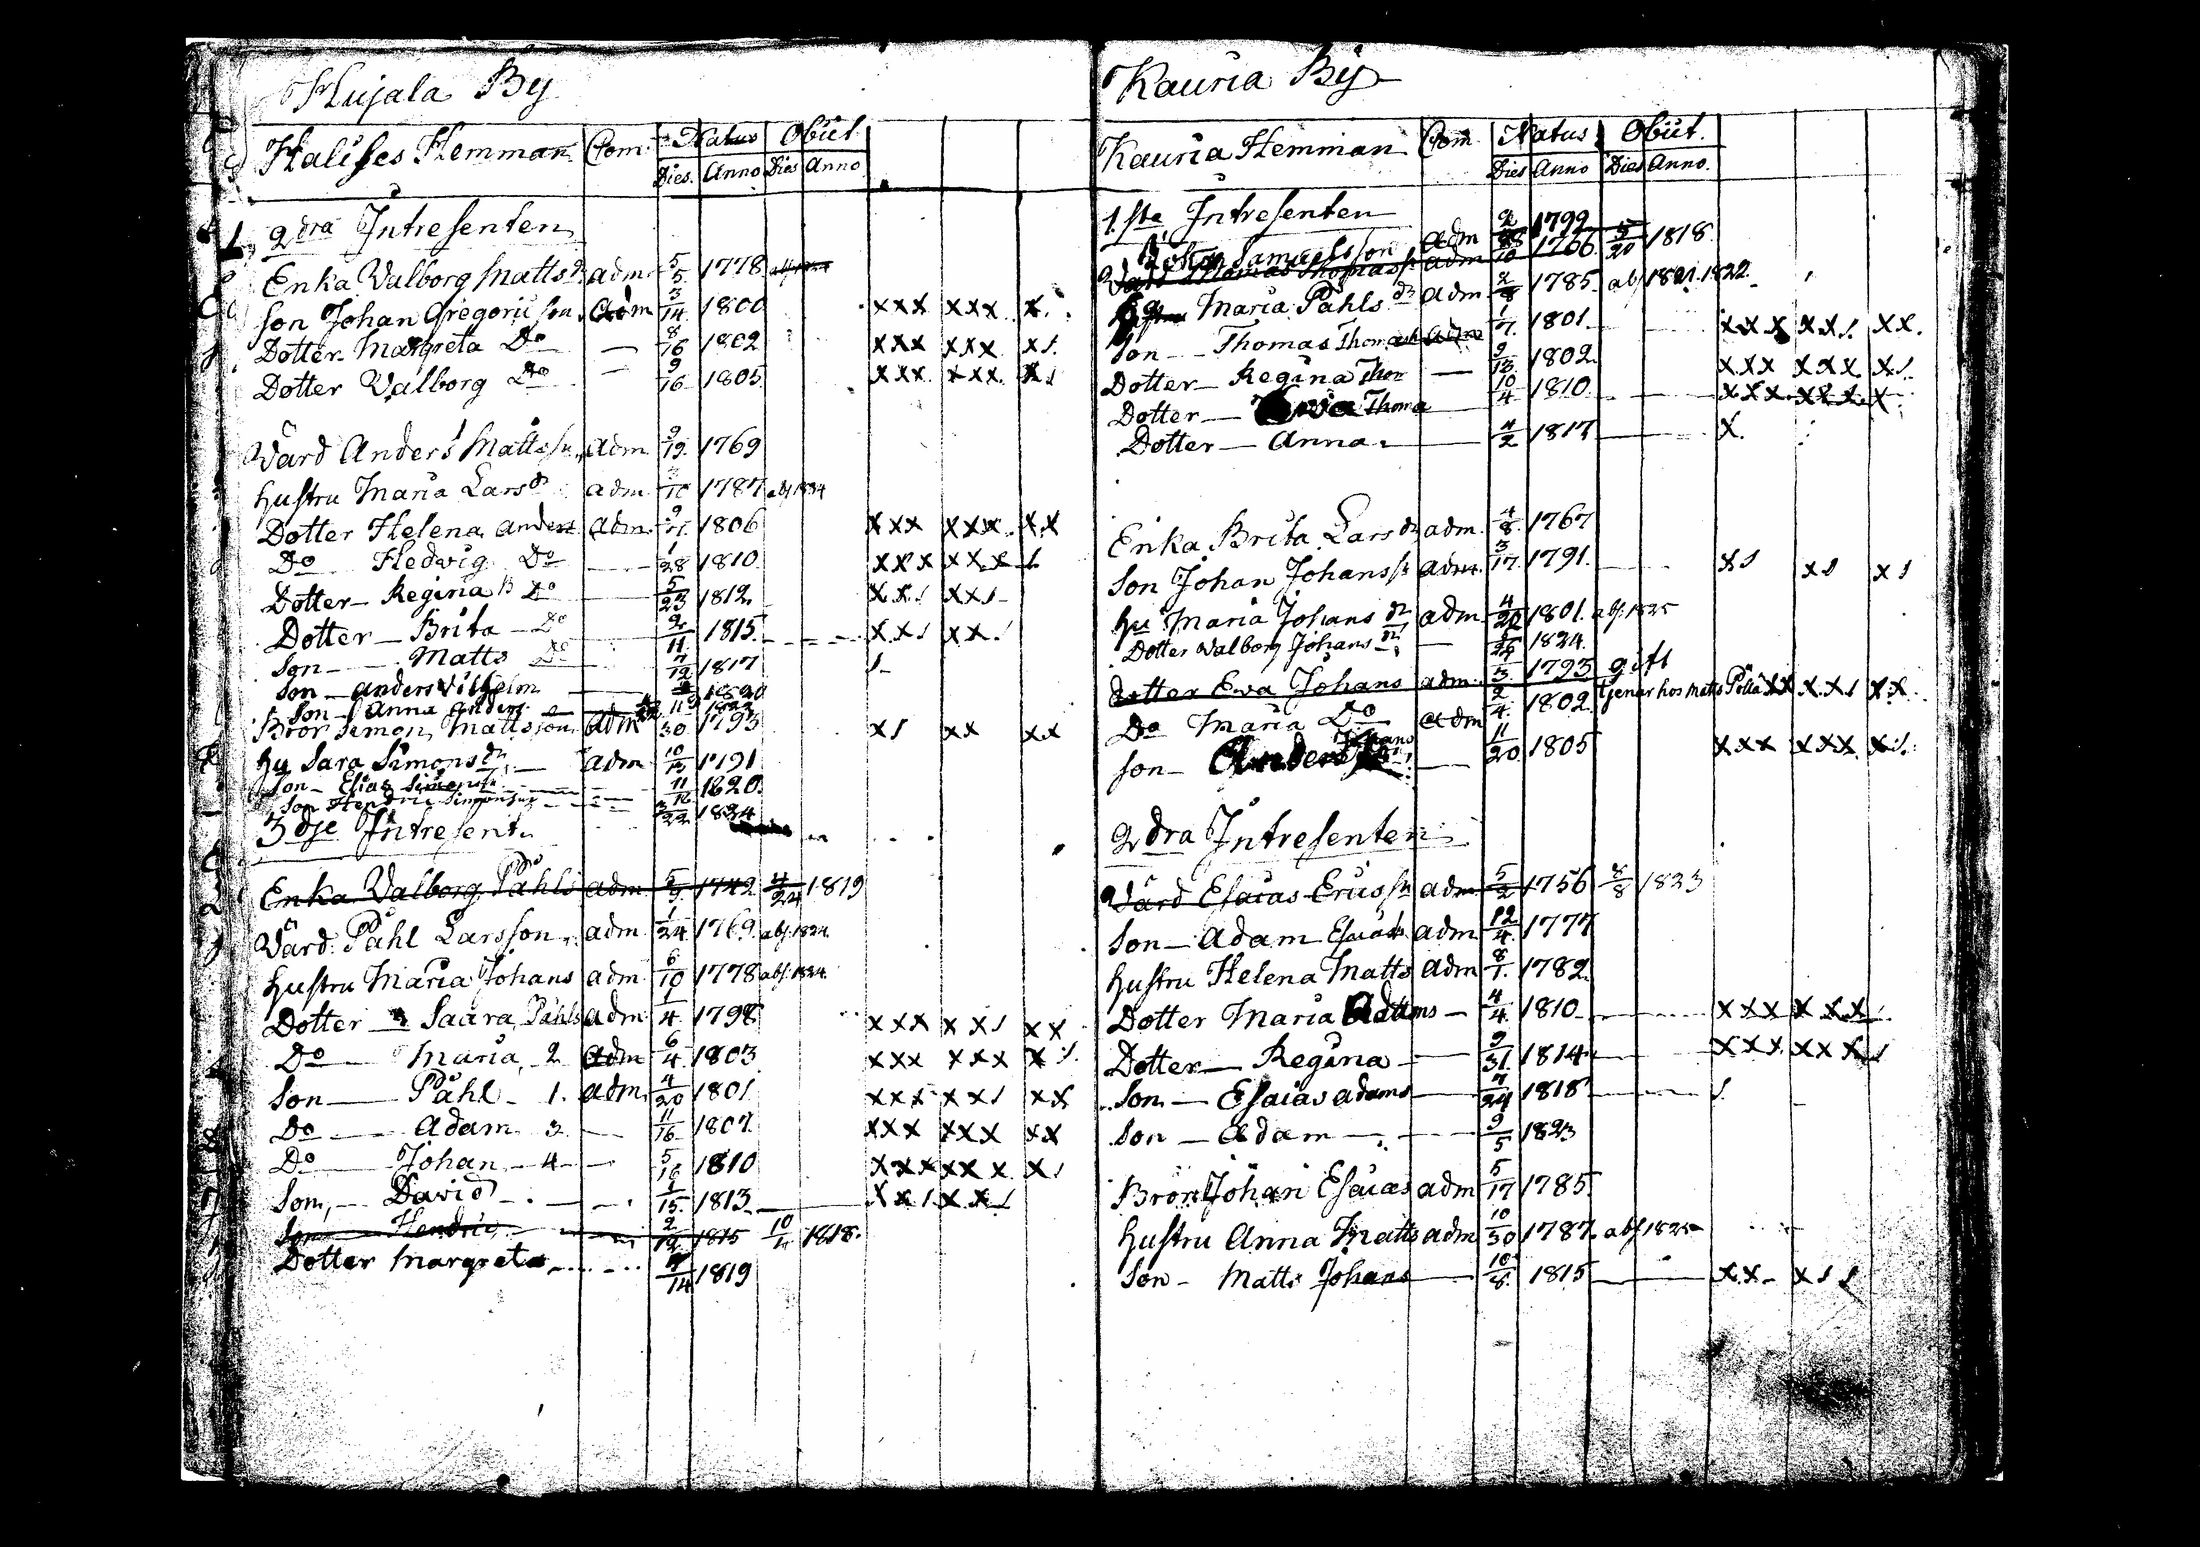 Hujala By
Halises Hemman Com. Natus Obiit
Dies. Anno Dies Anno
2dra Intresenten
Enka Valborg Mattsd. adm. 5/5 1778
Son Johan Gregorii son adm 3/14 1800 xxx xxx x.
Dotter Margreta Do — 8/16 1802 xxx xxx x1.
Dotter Valborg Do — 9/16 1805 xxx xxx x1
Vård Anders Mattss. adm. 9/19 1769
Hustru Maria Larsdr adm. 1787 abs 1824
Dotter Helena Anders adm. 1806 xxx xxx xx
Do Hedvig Do — 1/28 1810 xxx xxx 1
Dotter Regina Do — 5/23 1812 xx1 xx1
Dotter — Brita — Do 1815 xx1 xx1
Son — Matts Do 7/12 1817 1
Son — Anders Vilhelm — 1820
Anna Anders
Bror Simon Mattsson adm 30 1793 x1 xx xx
Hu Sara Simonsdr — adm 1791
Son — Esias Simonss 1820
Son Hendric Simonss 1824
3dje Intresent.
Enka Valborg Påhls adm. 1742 4/24 1819
Vård Påhl Larsson adm. 1/24 1769 abs. 1824
Hustru Maria Johans adm. 6/10 1778 abs. 1824
Dotter Saara Påhls adm. 1/4 1798 xxx xx1 xx
Do Maria 2 adm 6/4 1803 xxx xxx x1.
Son — Påhl — 1. adm. 4/20 1801 xxx xx1 xx
Do — Adam 3 — 11/16 1807 xxx xxx xx
Do — Johan — 4 — 5/16 1810 xxx xxx x1
Son, — David — 1/15 1813 xx1 xx1
Son Hendric 2/12 1815 10/4 1818.
Dotter Margreta 1819
Kauria By
Kauria Hemman Com. Natus Obiit.
Dies Anno Dies Anno.
1ste Intresenten
Johan Samuelsson adm 1799
Vård Thomas Thomass. adm 1766 5/20 1818
Maria Påhlsdr adm 2/8 1785 abs 1821. 1822
Son — Thomas Thomass. 1/7 1801 xxx xx1. xx.
Dotter — Regina Thom — 9/13 1802 xxx xxx x1.
Dotter — Thoma 10/4 1810 xxx xxx x
Dotter — Anna 4/2 1817 x.
Enka Brita Larsdr adm. 4/8 1767
Son Johan Johanss. adm. 3/17 1791 x1 x1 x1
Hu Maria Johansdr adm 4/20 1801 abs. 1825
Dotter Valborg Johansdr — 1824.
Dotter Eva Johans adm. 1793 gift
Do Maria Do adm 2/4 1802 tjenar hos Matts xx xx1 xx
Son — Anders Johans — 11/20 1805 xxx xxx x1.
2dra Intresenten
Vård Esaias Ericss. adm 5/2 1756 8/8 1823
Son — Adam Esaias adm 12/4 1777
Hustru Helena Matts adm 8/1 1782
Dotter Maria Adams — 4/4 1810 xxx xxx
Dotter — Regina — 9/31 1814 xxx xxx1
Son — Esaias Adams 7/24 1818 1
Son — Adam 9/5 1823
Bror Johan Esaias adm 5/17 1785
Hustru Anna Matts adm 10/30 1787 abs 1825
Son — Matts Johans — 10/8 1815 xx x11